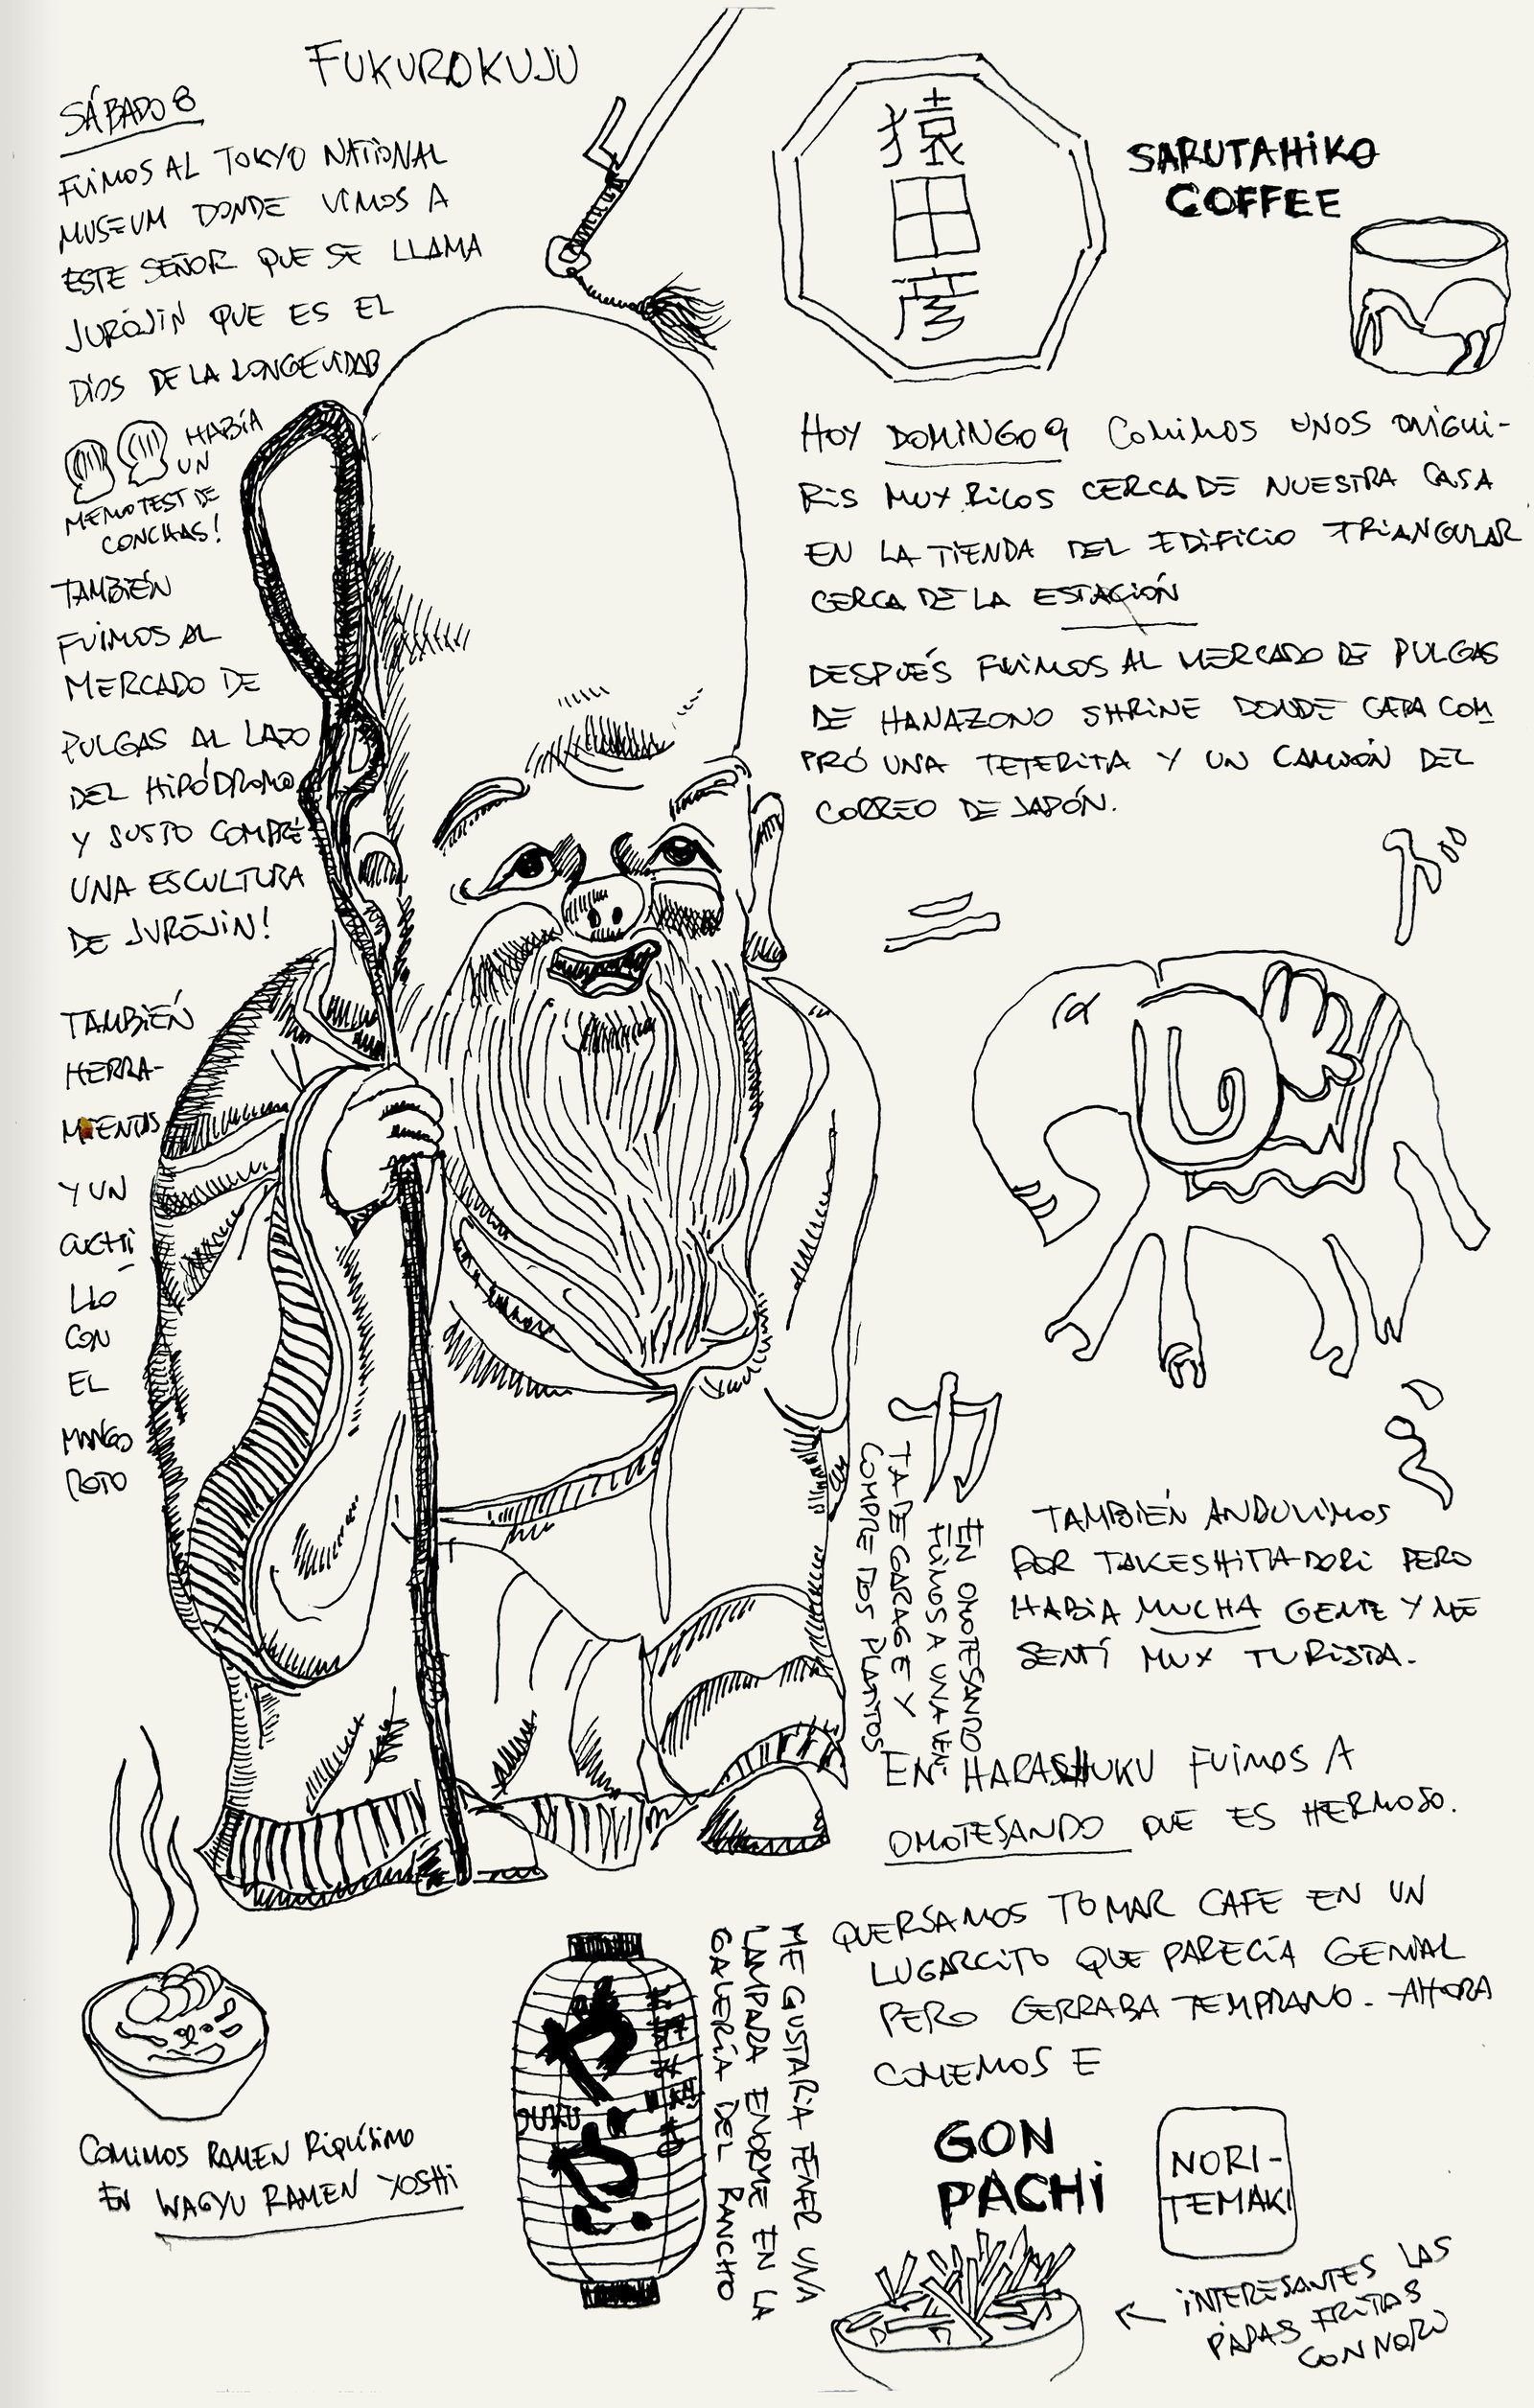 FUKUROKUJU
SÁBADO 8
FUIMOS AL TOKYO NATIONAL
MUSEUM DONDE VIMOS A
ESTE SEÑOR QUE SE LLAMA
JURŌJIN QUE ES EL
DIOS DE LA LONGEVIDAD
HABÍA
UN
MEMOTEST DE
CONCHAS!
TAMBIÉN
FUIMOS AL
MERCADO DE
PULGAS AL LADO
DEL HIPÓDROMO
Y JUSTO COMPRÉ
UNA ESCULTURA
DE JURŌJIN!
TAMBIÉN
HERRA-
MIENTAS
Y UN
CUCHI
LLO
CON
EL
MANGO
ROTO
猿
田
彦
SARUTAHIKO
COFFEE
HOY DOMINGO 9 COMIMOS UNOS ONIGUI-
RIS MUY RICOS CERCA DE NUESTRA CASA
EN LA TIENDA DEL EDIFICIO TRIANGULAR
CERCA DE LA ESTACIÓN
DESPUÉS FUIMOS AL MERCADO DE PULGAS
DE HANAZONO SHRINE DONDE CATA COM
PRÓ UNA TETERITA Y UN CAMIÓN DEL
CORREO DE JAPÓN.
EN OMOTESANDO
FUIMOS A UNA VEN
TA DE GARAGE Y
COMPRE DOS PLATITOS
TAMBIÉN ANDUVIMOS
POR TAKESHITA-DORI PERO
HABIA MUCHA GENTE Y ME
SENTÍ MUY TURISTA.
EN HARASHUKU FUIMOS A
OMOTESANDO QUE ES HERMOSO.
QUERÍAMOS TOMAR CAFE EN UN
LUGARCITO QUE PARECÍA GENIAL
PERO CERRABA TEMPRANO. AHORA
COMEMOS E
GON
PACHI
NORI-
TEMAKI
INTERESANTES LAS
PAPAS FRITAS
CON NORI
ME GUSTARIA TENER UNA
LAMPARA ENORME EN LA
GALERÍA DEL RANCHO
COMIMOS RAMEN RIQUÍSIMO
EN WAGYU RAMEN YOSHI